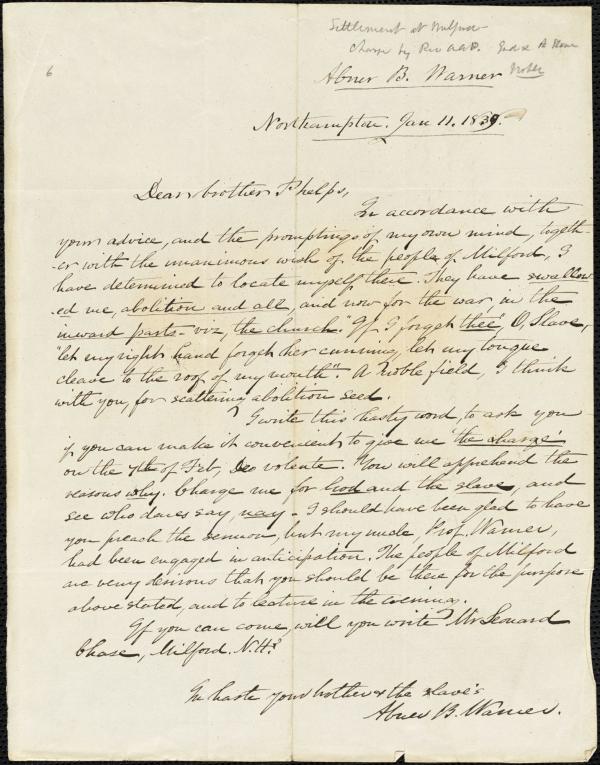 Settlement at Milford
Charge by Rev A.A.P.
6
Abner B. Warner
Northampton. Jan 11. 1839.
Dear brother Phelps,
In accordance with
your advice, and the promptings of my own mind, togeth-
-er with the unanimous wish of the people of Milford, I
have determined to locate myself there. They have swallow-
-ed me, abolition and all, and now for the war in the
inward parts - viz, the church." If I forget thee, O, Slave,
"let my right hand forget her cunning, let my tongue
cleave to the roof of my mouth". A noble field, I think
with you, for scattering abolition seed.
I write this hasty word, to ask you
if you can make it convenient to give me 'the charge'
on the 7th of Feb, Deo volente. You will apprehend the
reasons why. Charge me for God and the slave, and
see who dares say, nay. I should have been glad to have
you preach the sermon, but my uncle, Prof. Warner,
had been engaged in anticipation. The people of Milford
are very desirous that you should be there for the purpose
above stated, and to lecture in the evening.
If you can come, will you write Mr Leonard
Chase, Milford. N.H.?
In haste your brother & the slave's
Abner B. Warner.